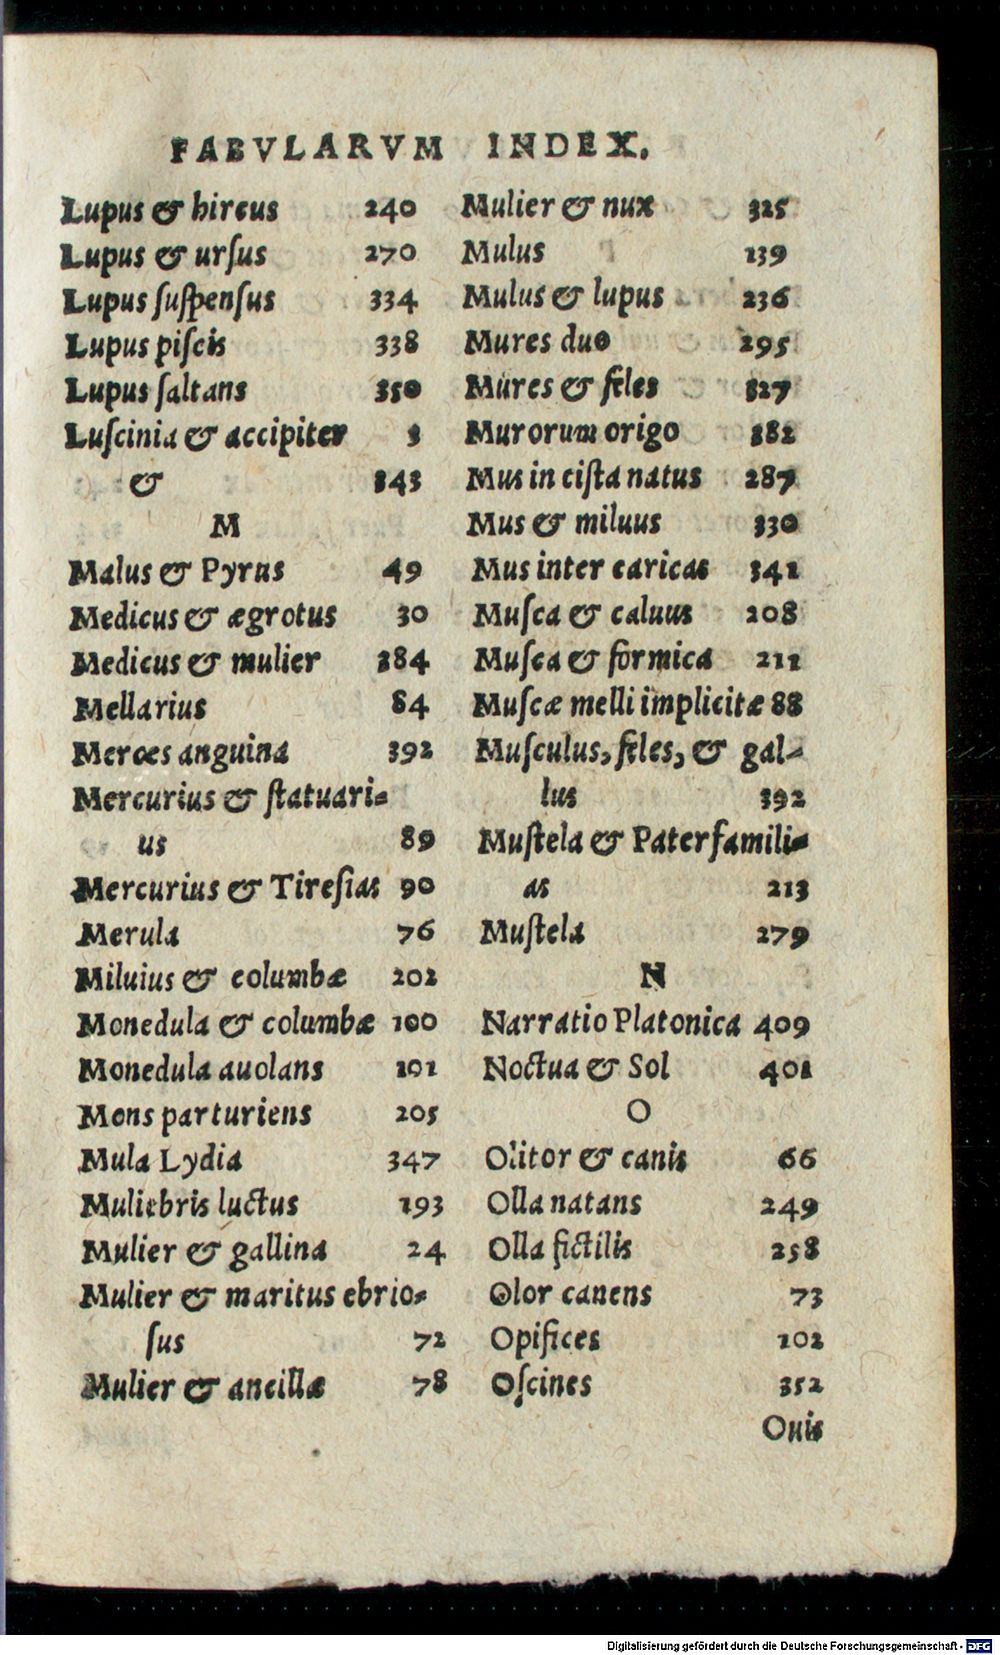 FABVLARVM INDEX.
Lupus & hircus 240
Lupus & urſus 270
Lupus ſuſpenſus 334
Lupus piſcis 338
Lupus ſaltans 350
Luſcinia & accipiter 3
& 343
M
Malus & Pyrus 49
Medicus & ægrotus 30
Medicus & mulier 384
Mellarius 84
Merces anguina 392
Mercurius & ſtatuari-
us 89
Mercurius & Tireſias 90
Merula 76
Miluius & columbæ 202
Monedula & columbæ 100
Monedula auolans 101
Mons parturiens 205
Mula Lydia 347
Muliebris luctus 193
Mulier & gallina 24
Mulier & maritus ebrio-
ſus 72
Mulier & ancillæ 78
Mulier & nux 325
Mulus 139
Mulus & lupus 236
Mures duo 295
Mures & feles 327
Murorum origo 382
Mus in ciſta natus 287
Mus & miluus 330
Mus inter caricas 341
Muſca & caluus 208
Muſca & formica 211
Muſcæ melli implicitæ 88
Muſculus, feles, & gal-
lus 392
Muſtela & Paterfamili-
as 213
Muſtela 279
N
Narratio Platonica 409
Noctua & Sol 401
O
Olitor & canis 66
Olla natans 249
Olla fictilis 258
Olor canens 73
Opifices 102
Oſcines 352
Ouis
Digitalisierung gefördert durch die Deutsche Forschungsgemeinschaft - DFG